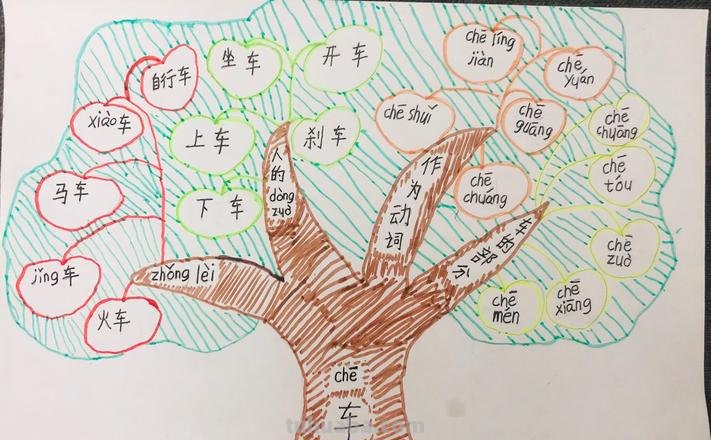 自行车
xiǎo车
马车
jǐng车
火车
zhǒng lèi
坐车
开车
上车
刹车
下车
人的
dòng
zuò
chē líng
jiàn
chē
yuán
chē shuǐ
chē
guāng
chē
chuáng
作为动词
chē
chuāng
chē
tóu
chē
zuò
chē
xiāng
chē
mén
车的部分
chē
车